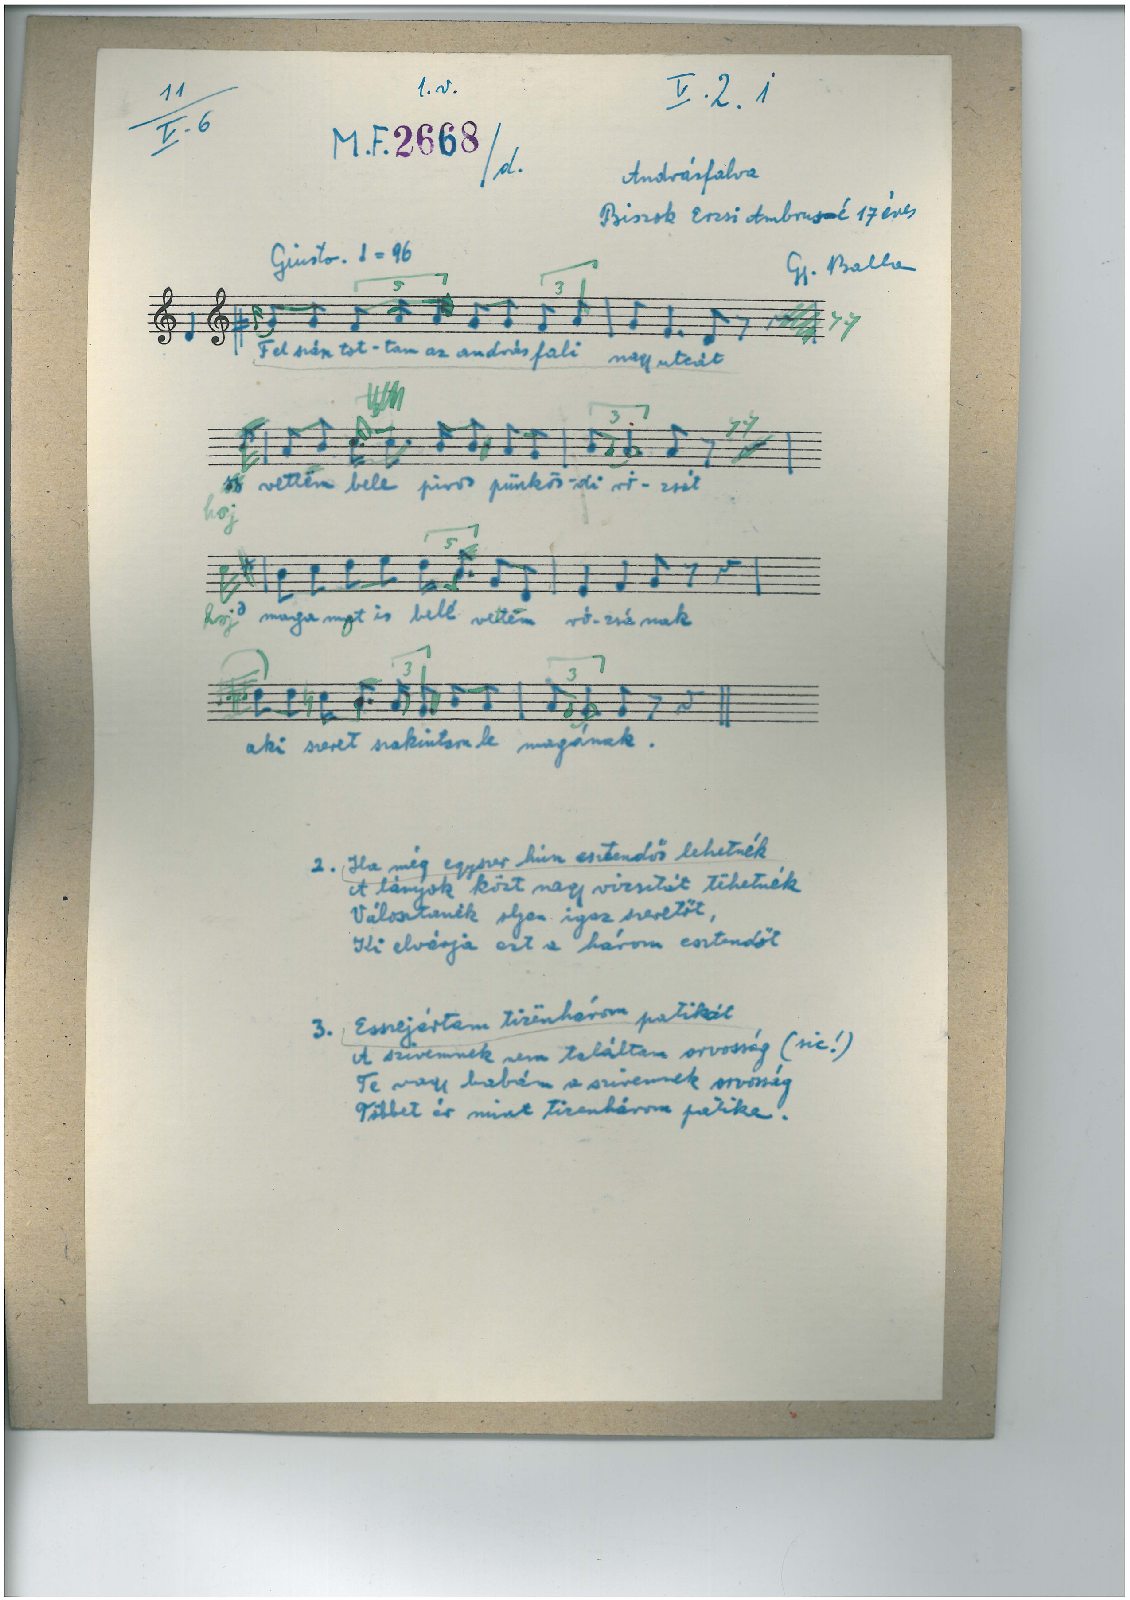 11
V.6
1.v.
V.2.i
M.F.2668/d.
Andrásfalva
Biszok Erzsi Ambrusé 17 éves
Giusto. = 96
Gy. Balla
5
3
Fel szán tot-tam az andrásfali nagy utcát
3
vettëm bele piros pünkös-di ró-zsát
hoj
5
hoj magamot is bele vettëm ró-zsá nak
3
3
aki szeret szakintson le magának.
2. Ha még egyszer hún esztendős lehetnék
A lányok közt nagy vizsitát tëhetnék
Választanék olyan igaz szeretőt,
Ki elvárja ezt a három esztendőt
3. Esszejártam tizënhárom patikát
A szivemnek nem találtam orvosság (sic!)
Te vagy babám a szivemnek orvosság
Többet ér mint tizenhárom patika.